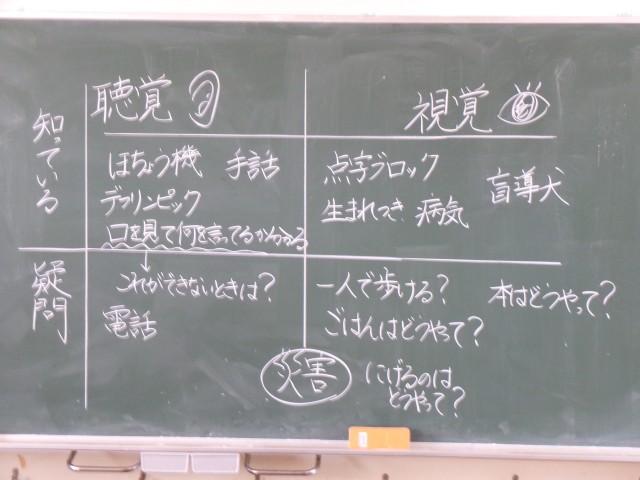 聴覚
視覚
知っている
ほちょう機 手話
デフリンピック
口を見て何を言ってるか分かる
点字ブロック
盲導犬
生まれつき 病気
疑問
これができないときは?
電話
一人で歩ける?
本はどうやって?
ごはんはどうやって?
災害
にげるのは
どうやって?